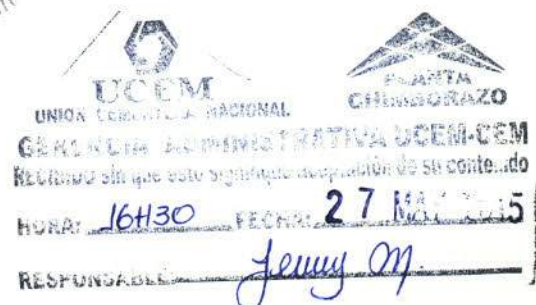 UCEM
UNION CEMENTERA NACIONAL
PLANTA
CHIMBORAZO
GERENCIA ADMINISTRATIVA UCEM-CEM
RECIBIDO sin que esto signifique aceptación de su contenido
HORA: 16H30 FECHA: 27
RESPONSABLE: Jenny M.